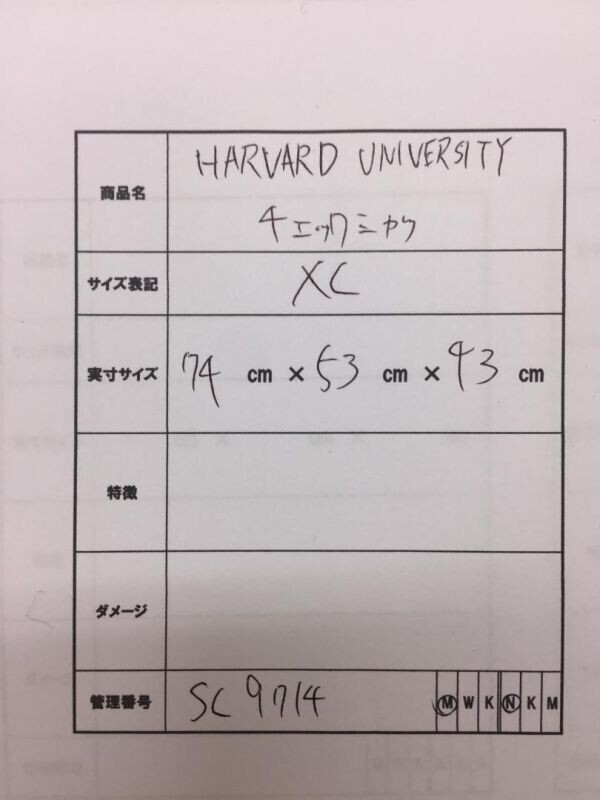 商品名 HARVARD UNIVERSITY
チェックシャツ
サイズ表記 XL
実寸サイズ 74 cm × 53 cm × 43 cm
特徴
ダメージ
管理番号 SC9714 M W K N K M